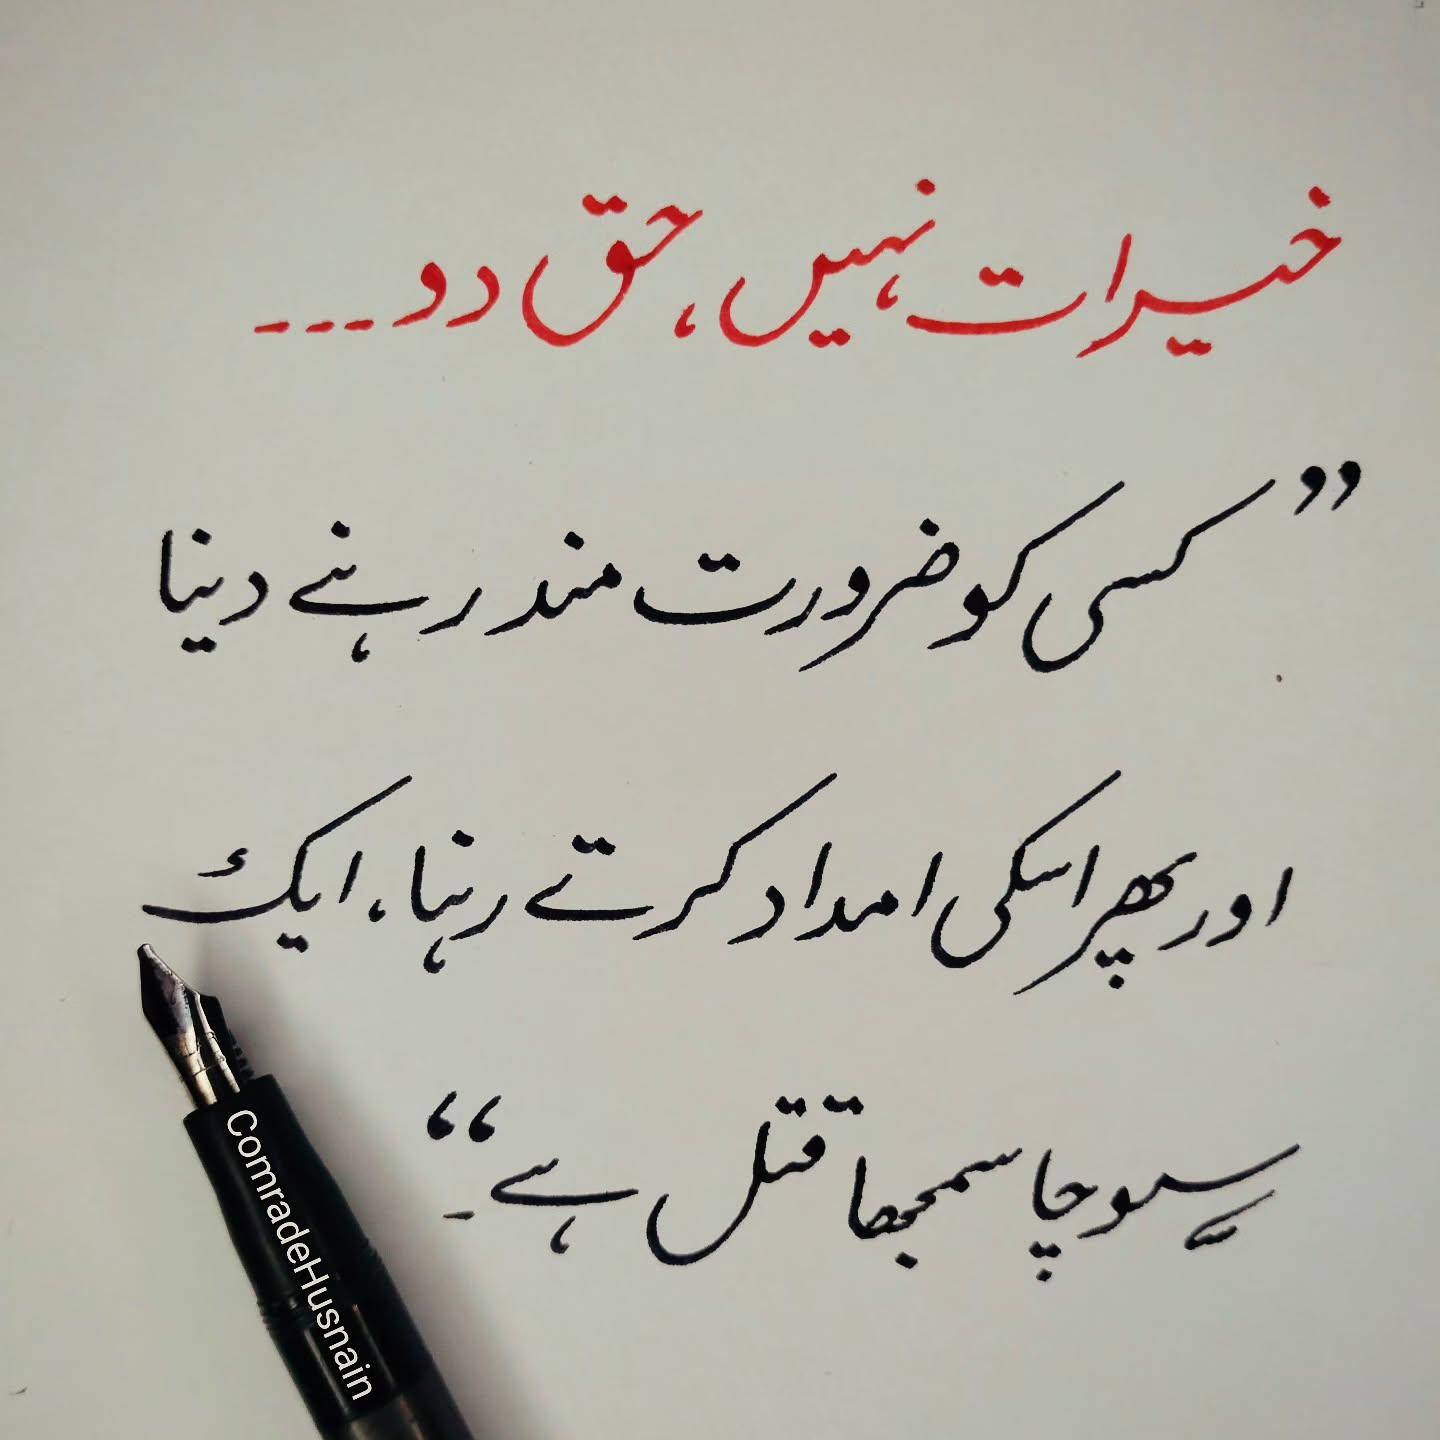 خیرات نہیں، حق دو---
”کسی کو ضرورت مند رہنے دینا
اور پھر اسکی امداد کرتے رہنا، ایک
سوچا سمجھا قتل ہے۔“
ComradeHusnain